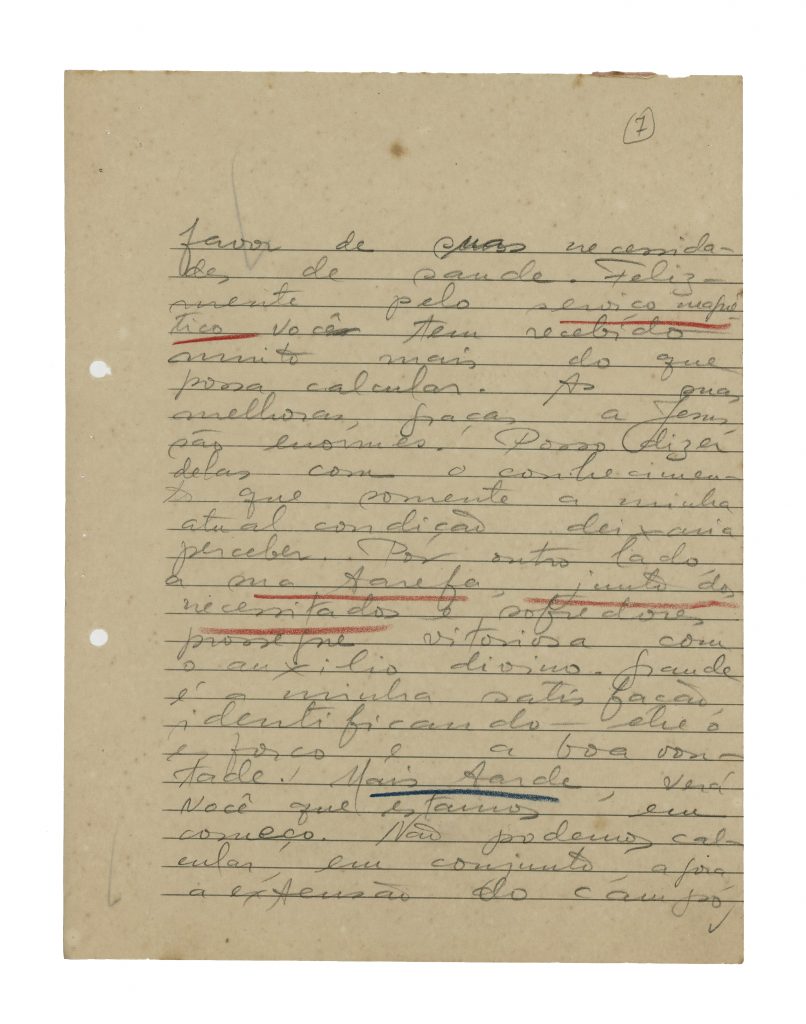 7
favor de suas necessida-
des de saude. Feliz-
mente pelo serviço magné-
tico você tem recebido
muito mais do que
possa calcular. As suas
melhoras, graças a Jesus
são enórmes. Posso dizer
delas com o conhecimen-
to que somente a minha
atual condição deixaria
perceber. Por outro lado,
a sua tarefa, junto dos
necessitados e sofredores
prossegue vitoriosa com
o auxilio divino. Grande
é a minha satisfação,
identificando-lhe o
esforço e a boa von-
tade. Mais tarde, verá
você que estamos em
começo. Não podemos cal-
cular, em conjunto, agora
a extensão do campo,